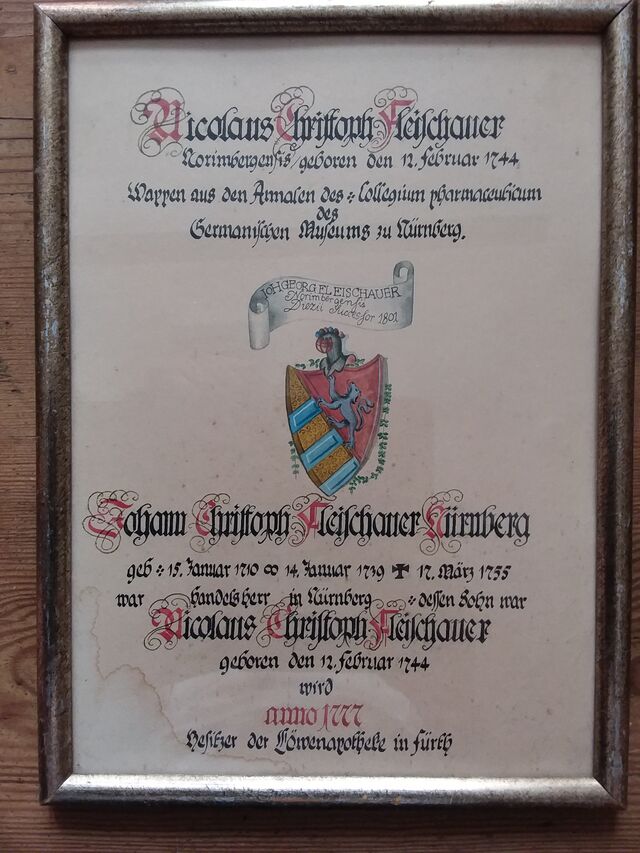 Nicolaus Christoph Fleischauer
Norimbergensis, geboren den 12. Februar 1744
Wappen aus den Annalen des : Collegium pharmaceuticum
des
Germanischen Museums zu Nürnberg.
JOH GEORG FLEISCHAUER
Norimbergensis
Diezii Successor 1801
Johann Christoph Fleischauer Nürnberg
geb : 15. Januar 1710 ∞ 14. Januar 1739 ✠ 17. März 1755
war Handelsherr in Nürnberg : dessen Sohn war
Nicolaus Christoph Fleischauer
geboren den 12. Februar 1744
wird
anno 1777
Besitzer der Löwenapotheke in Fürth